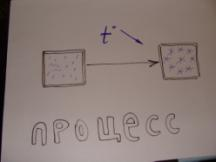 t°
ПРОЦЕСС